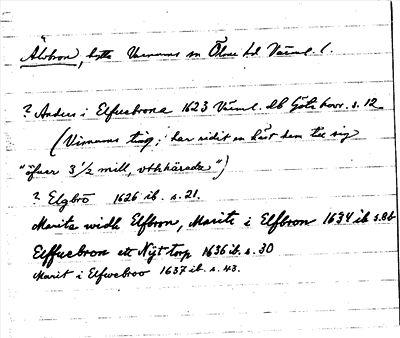 Älvbron, hytta Visnums sn Ölme hd Värml. l.
? Anders i Elfuebrona 1623 Värml. db Göta hovr. s. 12
(Visnums ting; har ridit en häst dem til sig
"öfuer 3½ mill, vthkärade")
? Elgbrö 1626 ib. s. 21.
Marits widh Elfbron, Marits i Elfbron 1634 ib s. 86
Elffuebron ett Nyt torp 1636 ib. s. 30
Marit i Elfwebroo 1637 ib. s. 43.